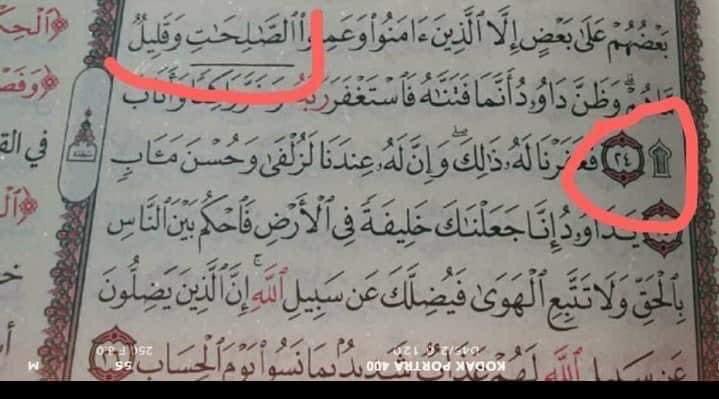 بَعْضُهُمْ عَلَىٰ بَعْضٍ إِلَّا ٱلَّذِينَ ءَامَنُوا۟ وَعَمِلُوا۟ ٱلصَّٰلِحَٰتِ وَقَلِيلٌ
مَّا هُمْ ۗ وَظَنَّ دَاوُۥدُ أَنَّمَا فَتَنَّٰهُ فَٱسْتَغْفَرَ رَبَّهُۥ وَخَرَّ رَاكِعًا وَأَنَابَ
۩ ٢٤ فَغَفَرْنَا لَهُۥ ذَٰلِكَ ۖ وَإِنَّ لَهُۥ عِندَنَا لَزُلْفَىٰ وَحُسْنَ مَـَٔابٍ
يَٰدَاوُۥدُ إِنَّا جَعَلْنَٰكَ خَلِيفَةً فِى ٱلْأَرْضِ فَٱحْكُم بَيْنَ ٱلنَّاسِ
بِٱلْحَقِّ وَلَا تَتَّبِعِ ٱلْهَوَىٰ فَيُضِلَّكَ عَن سَبِيلِ ٱللَّهِ ۚ إِنَّ ٱلَّذِينَ يَضِلُّونَ
عَن سَبِيلِ ٱللَّهِ لَهُمْ عَذَابٌ شَدِيدٌۢ بِمَا نَسُوا۟ يَوْمَ ٱلْحِسَابِ
KODAK PORTRA 400
55
M